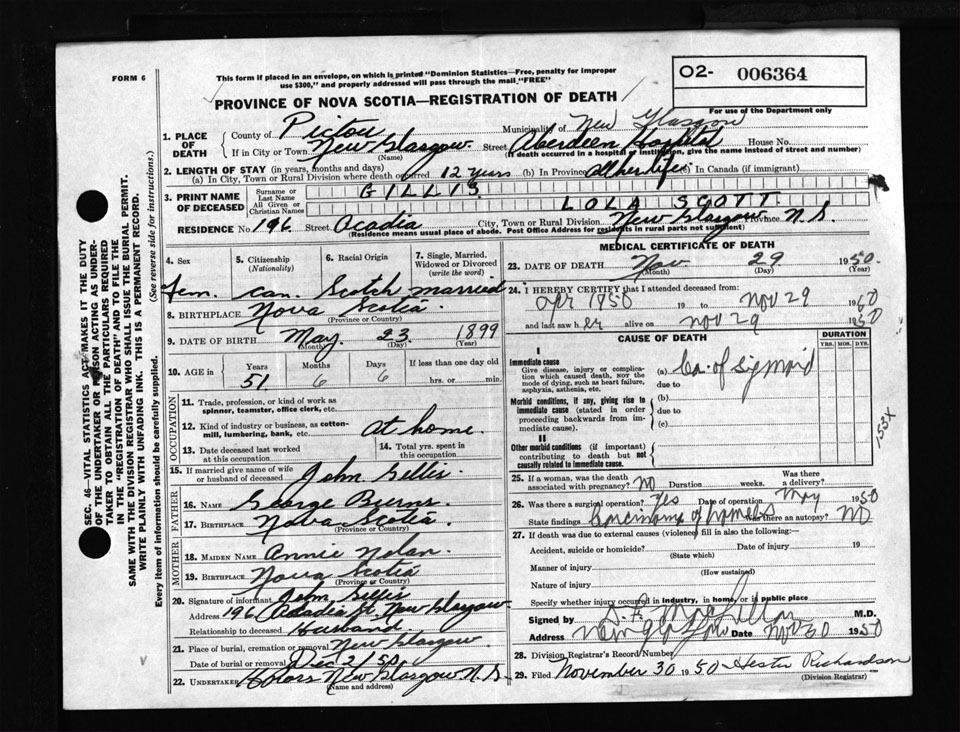 FORM 6
This form if placed in an envelope, on which is printed "Dominion Statistics—Free, penalty for improper
use $300," and properly addressed will pass through the mail "FREE"
O2- 006364
PROVINCE OF NOVA SCOTIA—REGISTRATION OF DEATH
For use of the Department only
1. PLACE OF DEATH
County of Pictou Municipality of New Glasgow
If in City or Town New Glasgow. Street Aberdeen Hospital House No.
(Name) (If death occurred in a hospital or institution, give the name instead of street and number)
2. LENGTH OF STAY (in years, months and days)
(a) In City, Town or Rural Division where death occurred 12 years (b) In Province all her life (c) In Canada (if immigrant)
3. PRINT NAME OF DECEASED
Surname or Last Name GILLIS
All Given or Christian Names LOLA SCOTT.
RESIDENCE No. 196 Street Acadia City, Town or Rural Division New Glasgow Province N.S.
(Residence means usual place of abode. Post Office Address for residents in rural parts not sufficient)
4. Sex
5. Citizenship (Nationality)
6. Racial Origin
7. Single, Married, Widowed or Divorced (write the word)
fem. can. Scotch married
8. BIRTHPLACE Nova Scotia
(Province or Country)
9. DATE OF BIRTH May. 23 1899
(Month) (Day) (Year)
10. AGE in Years Months Days If less than one day old
51 6 6 hrs. or min.
OCCUPATION
11. Trade, profession, or kind of work as spinner, teamster, office clerk, etc.
12. Kind of industry or business, as cotton-mill, lumbering, bank, etc. At home.
13. Date deceased last worked at this occupation
14. Total yrs. spent in this occupation
15. If married give name of wife or husband of deceased John Gillis.
FATHER
16. NAME George Burns
17. BIRTHPLACE Nova Scotia.
(Province or Country)
MOTHER
18. MAIDEN NAME Annie Nolan.
19. BIRTHPLACE Nova Scotia
(Province or Country)
20. Signature of informant John Gillis
Address 196 Acadia St. New Glasgow
Relationship to deceased Husband.
21. Place of burial, cremation or removal New Glasgow
Date of burial or removal Dec 2/50
22. UNDERTAKER New Glasgow N.S.
(Name and address)
MEDICAL CERTIFICATE OF DEATH
23. DATE OF DEATH Nov. 29 1950.
(Month) (Day) (Year)
24. I HEREBY CERTIFY that I attended deceased from:
Apr 1950 19 to Nov 29 19
and last saw her alive on Nov 29 1950
CAUSE OF DEATH
DURATION
YRS. MOS. DYS.
I
Immediate cause
Give disease, injury or complication which caused death, not the mode of dying, such as heart failure, asphyxia, asthenia, etc.
(a) Ca. of Sigmoid
due to
Morbid conditions, if any, giving rise to immediate cause (stated in order proceeding backwards from immediate cause)
(b)
due to
(c)
II
Other morbid conditions (if important) contributing to death but not causally related to immediate cause.
25. If a woman, was the death associated with pregnancy? NO Duration weeks. Was there a delivery?
26. Was there a surgical operation? Yes Date of operation May 1950
State findings Carcinoma of bowels Was there an autopsy? NO
27. If death was due to external causes (violence) fill in also the following:—
Accident, suicide or homicide? Date of injury 19
(State which)
Manner of injury
(How sustained)
Nature of injury
Specify whether injury occurred in industry, in home, or in public place
Signed by M.D.
Address New Glasgow Date Nov 30 1950
28. Division Registrar's Record Number
29. Filed November 30 1950 Hester Richardson
(Division Registrar)
SEC. 46—VITAL STATISTICS ACT MAKES IT THE DUTY
OF THE UNDERTAKER OR PERSON ACTING AS UNDER-
TAKER TO OBTAIN ALL THE PARTICULARS REQUIRED
IN THE "REGISTRATION OF DEATH" AND TO FILE THE
SAME WITH THE DIVISION REGISTRAR WHO SHALL ISSUE THE BURIAL PERMIT.
WRITE PLAINLY WITH UNFADING INK. THIS IS A PERMANENT RECORD.
Every item of information should be carefully supplied. (See reverse side for instructions.)